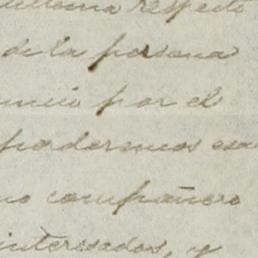 respeto
de la persona
por el
perdernos esa
compañero
interesados, y